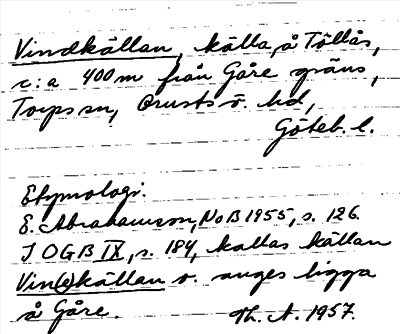 Vindkällan, källa, å Töllås,
c:a 400 m från Gåre gräns,
Torps sn, Orusts ö. hd,
Göteb. l.
Etymologi.
E. Abrahamson, NoB 1955, s. 126.
I OGB IX, s. 184, kallas källan
Vin(e)källan o. anges ligga
å Gåre. Th. A. 1957.